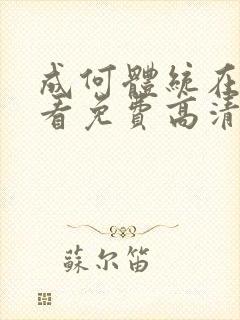 成何體統在
看免費高清
蘇尔笛